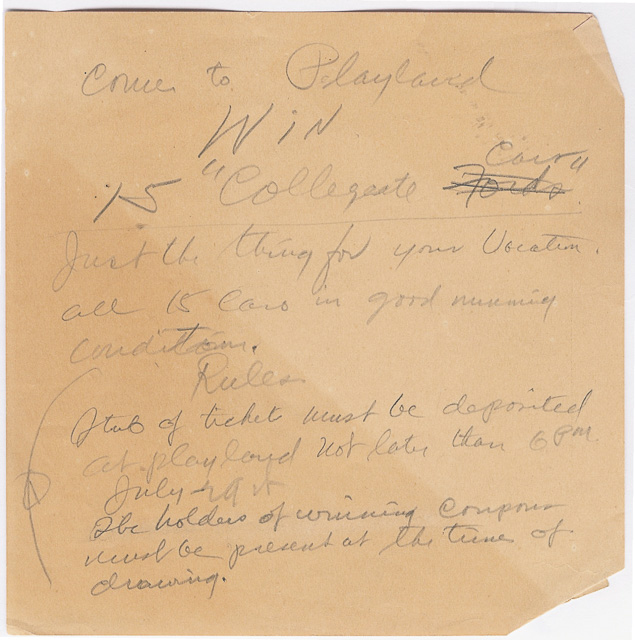 Come to Playland
WIN
15 "Collegate Fords Cars"
Just the thing for your Vocation.
all 15 Cars in good running
condition.
Rules
Stub of ticket must be deposited
at playland not later than 6 PM
July
The holders of winning coupons
must be present at the time of
drawing.